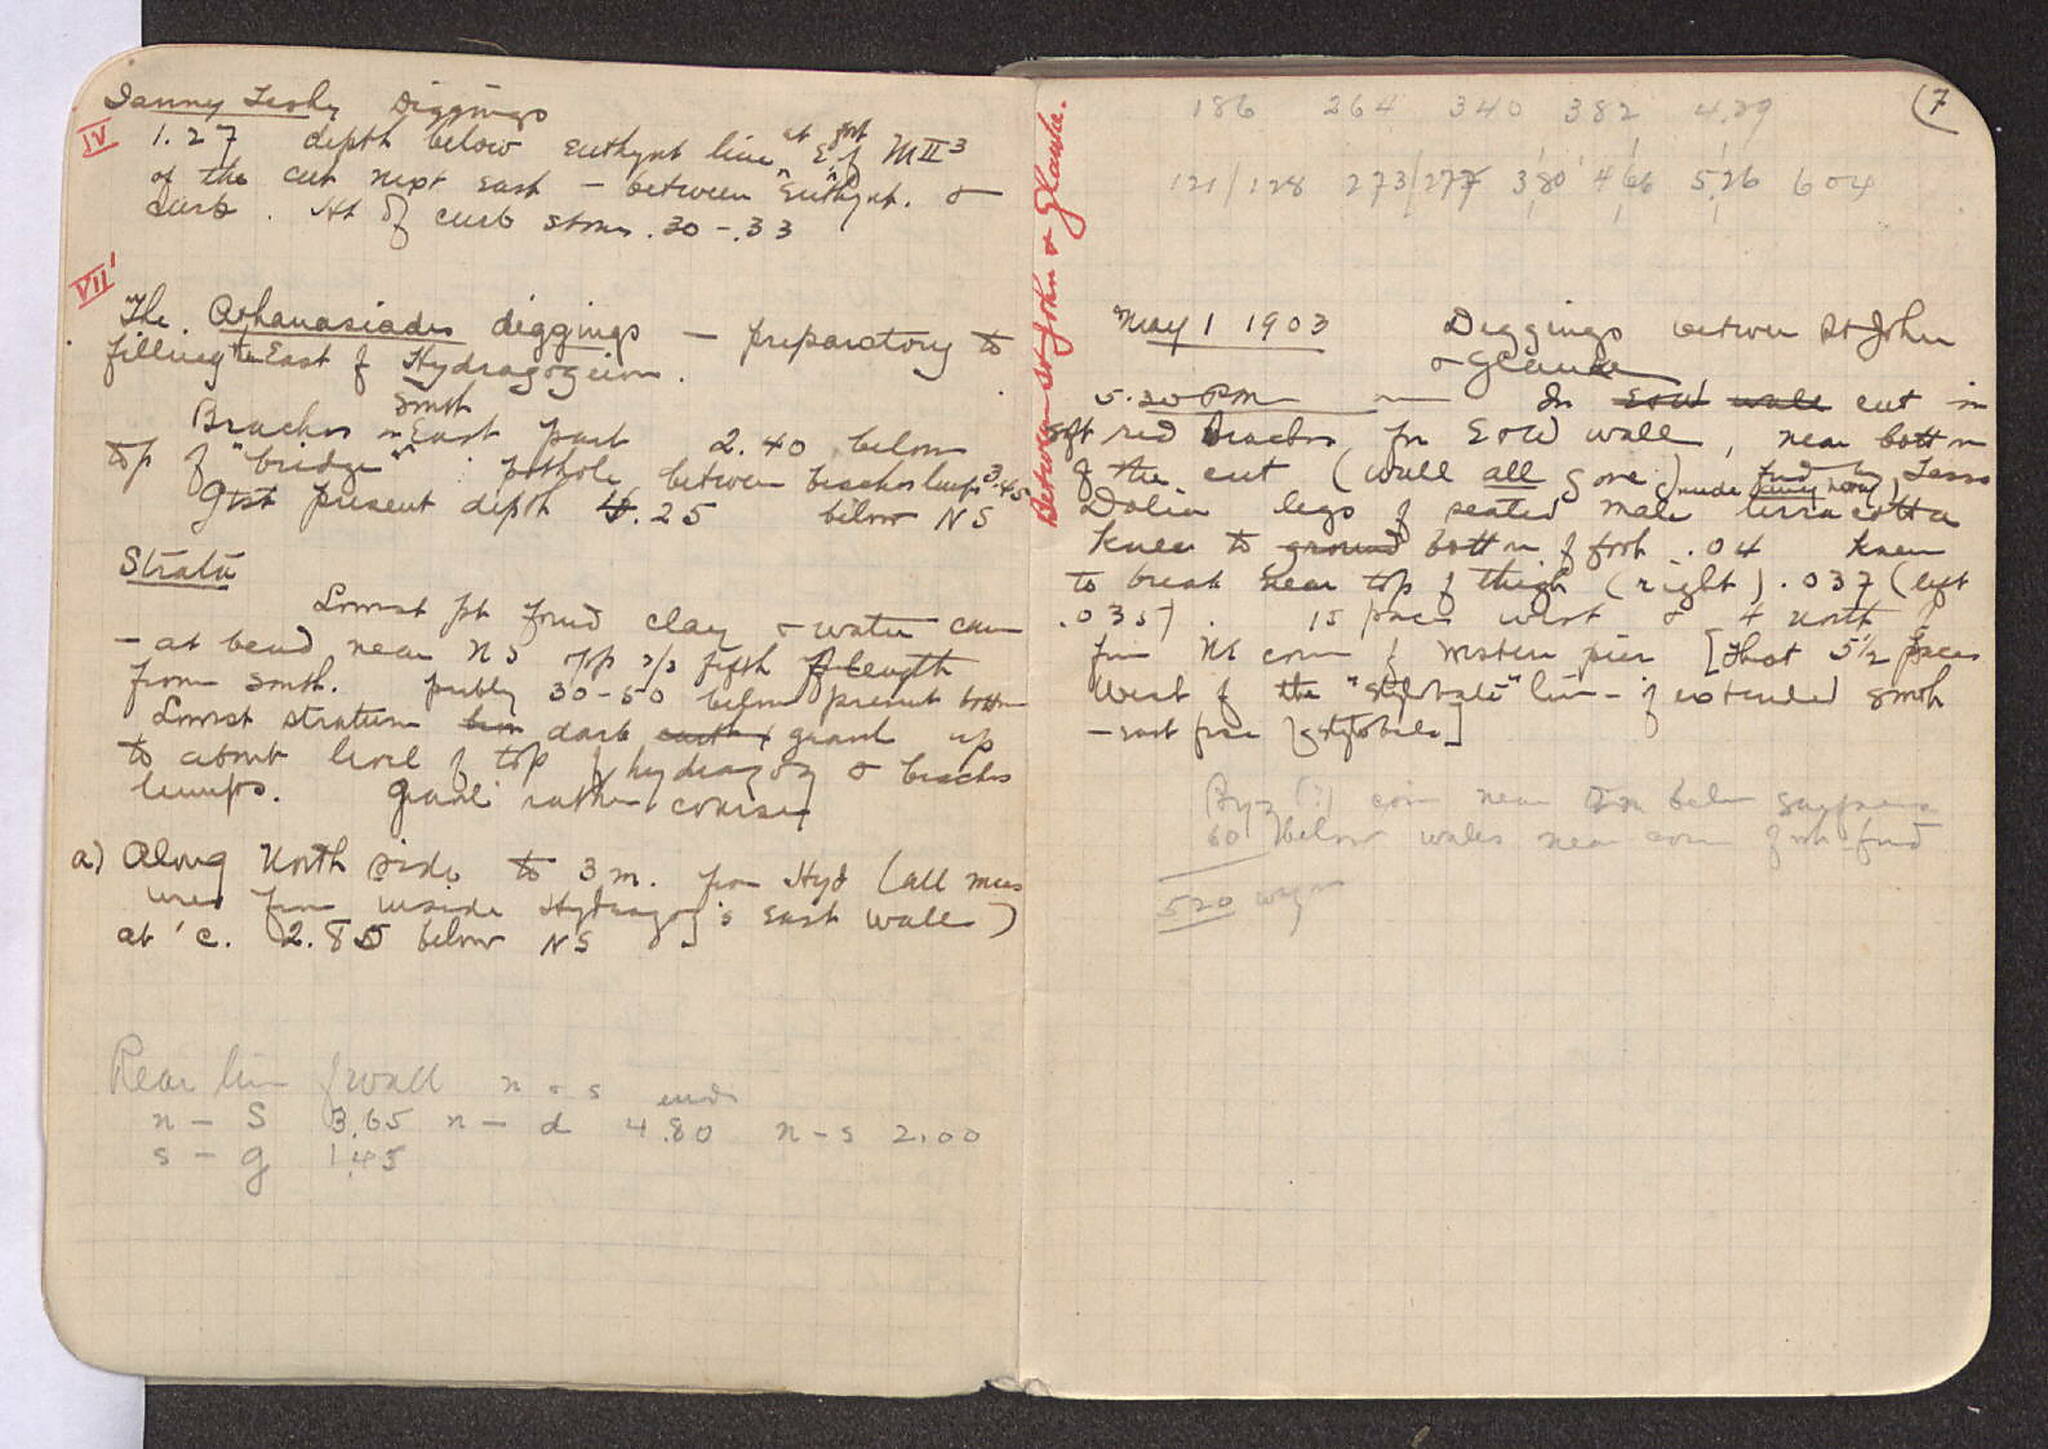 Diggings
IV
1.27 depth below Euthynt line at E. of MII³
of the cut next east - between Euthynt. &
curb. Ht of curb stones .30 - .33
VII'
The Athanasiades diggings - preparatory to
filling to East of Hydragogeion.
south
Brachos in East part 2.40 below
top of "bridge" : pothole between brachos lumps 3.45
Gtst present depth 4.25 below NS
Strata
Lowest pt found clay & water came
- at bend near NS opp fifth length
from south. probly 30-50 below present bottom
Lowest stratum dark earth gravel up
to about level of top of hydragog & brachos
lumps. Gravel rather coarse
a) Along North side to 3 m. from Hyd (all meas
ured from inside Hydragog's East wall)
at 'c. 2.85 below NS
Rear line of wall n & s ends
n - S 3.65 n - d 4.80 n - s 2.00
s - g 1.45
(7
186 264 340 382 4.29
121/128 273/277 380 466 5.26 604
Between St John & Glauke.
May 1 1903 Diggings between St John
& Glauke
5.30 PM — In E & W wall cut in
soft red Brachos for E & W wall, near bottom
of the cut (wall all gone) nude found by Tasso
Dolia legs of seated male terra cotta
Knee to ground bottom of foot .04 knee
to break near top of thigh (right) .037 (left
.035). 15 paces west & 4 north
from NE corner of western pier [that 5½ paces
West of the "stylobate" line - if extended south
- east face of stylobate]
Byz (?) coin near
60 below wales near corner found
520